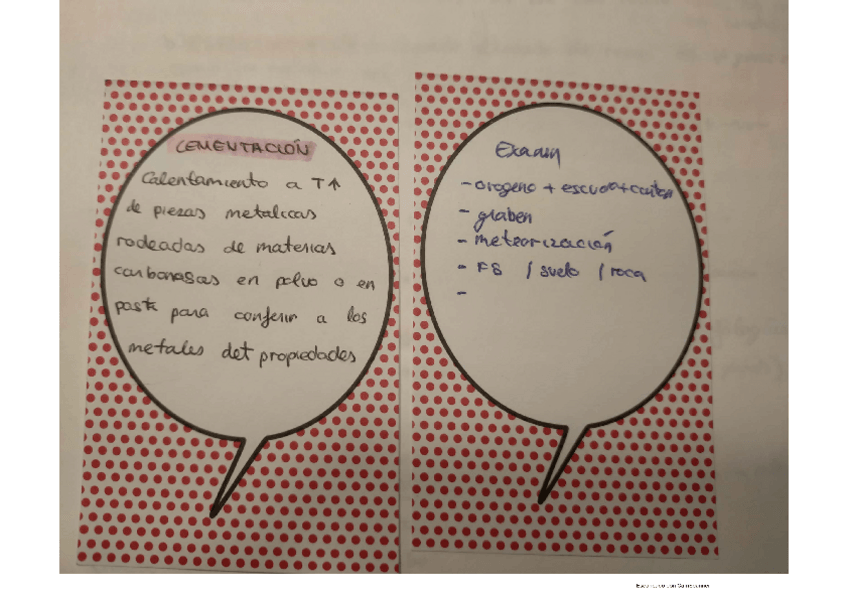 CEMENTACIÓN
Calentamiento a T↑
de piezas metalicas
rodeadas de materias
carbonosas en polvo o en
pasta para conferir a los
metales det propiedades
Examen
- orogeno + escudo + craton
- graben
- meteorización
- FS / suelo / roca
-
Escaneado con CamScanner